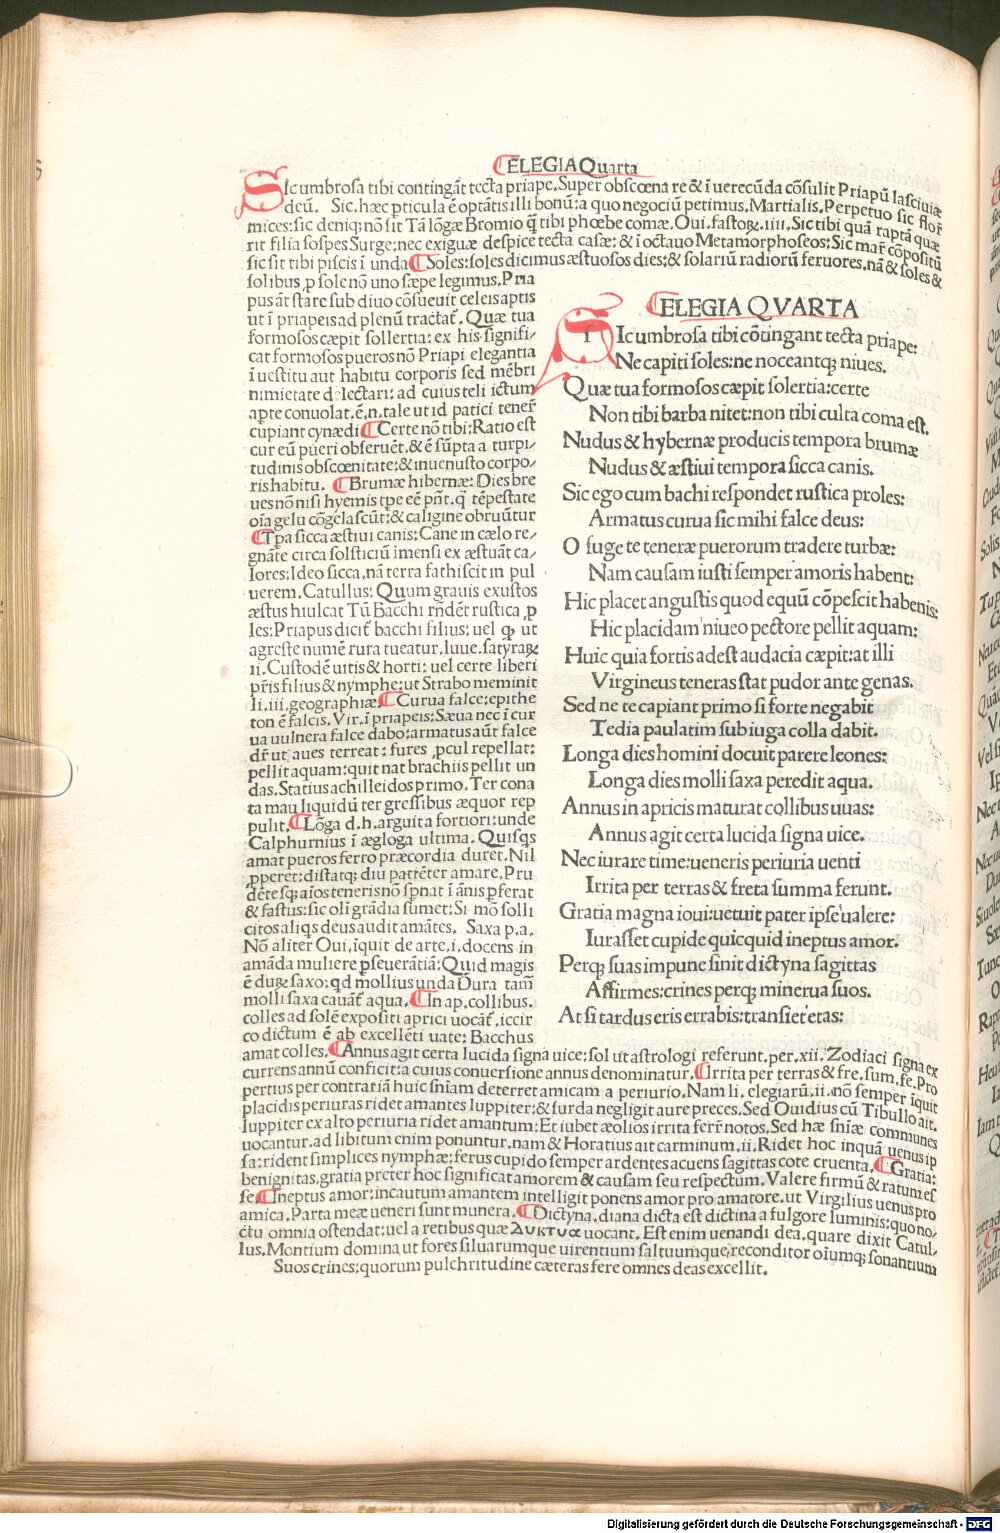 ELEGIA Quarta
SIc umbrosa tibi contingãt tecta priape. Super obscœna re & ĩuerecũda cõsulit Priapũ lasciuiæ
deũ. Sic. hæc pticula ẽ optãtis illi bonũ: a quo negociũ petimus. Martialis. Perpetuo sic flor̃
mices: sic deniq; nõ sit Tã lõgæ Bromio q̃ tibi phœbe comæ. Oui. fastoꝝ. iiii. Sic tibi quã raptã quæ
rit filia sospes Surge; nec exiguæ despice tecta casæ: & ĩ octauo Metamorphoseos: Sic mar̃ cõpositũ
sic sit tibi piscis ĩ unda Soles: soles dicimus æstuosos dies; & solariũ radiorũ feruores. nã & soles &
solibus p sole nõ uno sæpe legimus. Pria
pus ãt stare sub diuo cõsueuit celeis aptis
ut ĩ priapeis ad plenũ tractat̃. Quæ tua
formosos cæpit sollertia: ex his signifi/
cat formosos pueros nõ Priapi elegantia
ĩ uestitu aut habitu corporis sed mẽbri
nimietate delectari: ad cuius teli ictum
apte conuolat. ẽ. n. tale ut id patici tener̃
cupiant cynædi Certe nõ tibi: Ratio est
cur eũ pueri obseruẽt. & ẽ sũpta a turpi/
tudinis obscœnitate: & inuenusto corpo/
ris habitu. Brumæ hibernæ: Dies bre
ues nõ nisi hyemis tpe eẽ pñt. q̃ tẽpestate
oĩa gelu cõgelascũt: & caligine obruũtur
Tpa sicca æstiui canis: Cane in cælo re/
gnãte circa solsticiũ imensi ex æstuãt ca/
lores: Ideo sicca. nã terra fathiscit in pul
uerem. Catullus: Quum grauis exustos
æstus hiulcat Tũ Bacchi rñdẽt rustica p
les: Priapus dicit̃ bacchi filius: uel q ut
agreste numẽ rura tueatur. Iuue. satyraꝝ
ii. Custodẽ uitis & horti: uel certe liberi
pr̃is filius & nymphe: ut Strabo meminit
li. iii. geographiæ Curua falce: epithe
ton ẽ falcis. Vir. ĩ priapeis: Sæua nec ĩ cur
ua uulnera falce dabo: armatus aũt falce
dr̃ ut aues terreat: fures pcul repellat:
pellit aquam: quit nat brachiis pellit un
das. Statius achilleidos primo. Ter cona
ta mau liquidũ ter gressibus æquor rep
pulit. Lõga d. h. arguit a fortiori: unde
Calphurnius ĩ ægloga ultima. Quisqs
amat pueros ferro præcordia duret. Nil
pperet: distatq; diu patiẽter amare. Pru
dẽtesq; aios teneris nõ spnat ĩ ãnis pferat
& fastus: sic oli grãdia sumet: Si mõ solli
citos aliqs deus audit amãtes. Saxa p. a.
Nõ aliter Oui. iquit de arte. i. docens in
amãda muliere pseuerãtiã: Quid magis
ẽ duꝝ saxo: qd mollius unda Dura tam̃
molli saxa cauãt̃ aqua. In ap. collibus.
colles ad solẽ expositi aprici uocãt̃. iccir
co dictum ẽ ab excellẽti uate: Bacchus
amat colles. Annus agit certa lucida signa uice: sol ut astrologi referunt. per. xii. Zodiaci signa ex
currens annũ conficit: a cuius conuersione annus denominatur. Irrita per terras & fre. sum. fe. Pro
pertius per contrariã huic sñiam deterret amicam a periurio. Nam li. elegiarũ. ii. nõ semper iquit
placidis periuras ridet amantes Iuppiter: & surda negligit aure preces. Sed Ouidius cũ Tibullo ait.
Iuppiter ex alto periuria ridet amantum: Et iubet æolios irrita ferr̃ notos. Sed hæ sñiæ communes
uocantur. ad libitum enim ponuntur. nam & Horatius ait carminum. ii. Ridet hoc inquã uenus ip
sa: rident simplices nymphæ: ferus cupido semper ardentes acuens sagittas cote cruenta. Gratia:
benignitas. gratia preter hoc significat amorem & causam seu respectum. Valere firmũ & ratum es
se Ineptus amor: incautum amantem intelligit ponens amor pro amatore. ut Virgilius uenus pro
amica. Parta meæ ueneri sunt munera. Dictyna. diana dicta est dictina a fulgore luminis: quo no/
ctu omnia ostendat: uel a retibus quæ Δυκτυα uocant. Est enim uenandi dea. quare dixit Catul/
lus. Montium domina ut fores siluarumque uirentium saltuumque; reconditor oiumq; sonantium
Suos crines: quorum pulchritudine cæteras fere omnes deas excellit.
ELEGIA QVARTA
SIc umbrosa tibi cõtingant tecta priape:
Ne capiti soles: ne noceantq; niues.
Quæ tua formosos cæpit solertia: certe
Non tibi barba nitet: non tibi culta coma est.
Nudus & hybernæ producis tempora brumæ
Nudus & æstiui tempora sicca canis.
Sic ego cum bachi respondet rustica proles:
Armatus curua sic mihi falce deus:
O fuge te teneræ puerorum tradere turbæ:
Nam causam iusti semper amoris habent:
Hic placet angustis quod equũ cõpescit habenis:
Hic placidam niueo pectore pellit aquam:
Huic quia fortis adest audacia cæpit: at illi
Virgineus teneras stat pudor ante genas.
Sed ne te capiant primo si forte negabit
Tedia paulatim sub iuga colla dabit.
Longa dies homini docuit parere leones:
Longa dies molli saxa peredit aqua.
Annus in apricis maturat collibus uuas:
Annus agit certa lucida signa uice.
Nec iurare time: ueneris periuria uenti
Irrita per terras & freta summa ferunt.
Gratia magna ioui: uetuit pater ipse ualere:
Iurasset cupide quicquid ineptus amor.
Perq; suas impune sinit dictyna sagittas
Affirmes: crines perq; minerua suos.
At si tardus eris errabis: transiet etas:
Digitalisierung gefördert durch die Deutsche Forschungsgemeinschaft - DFG